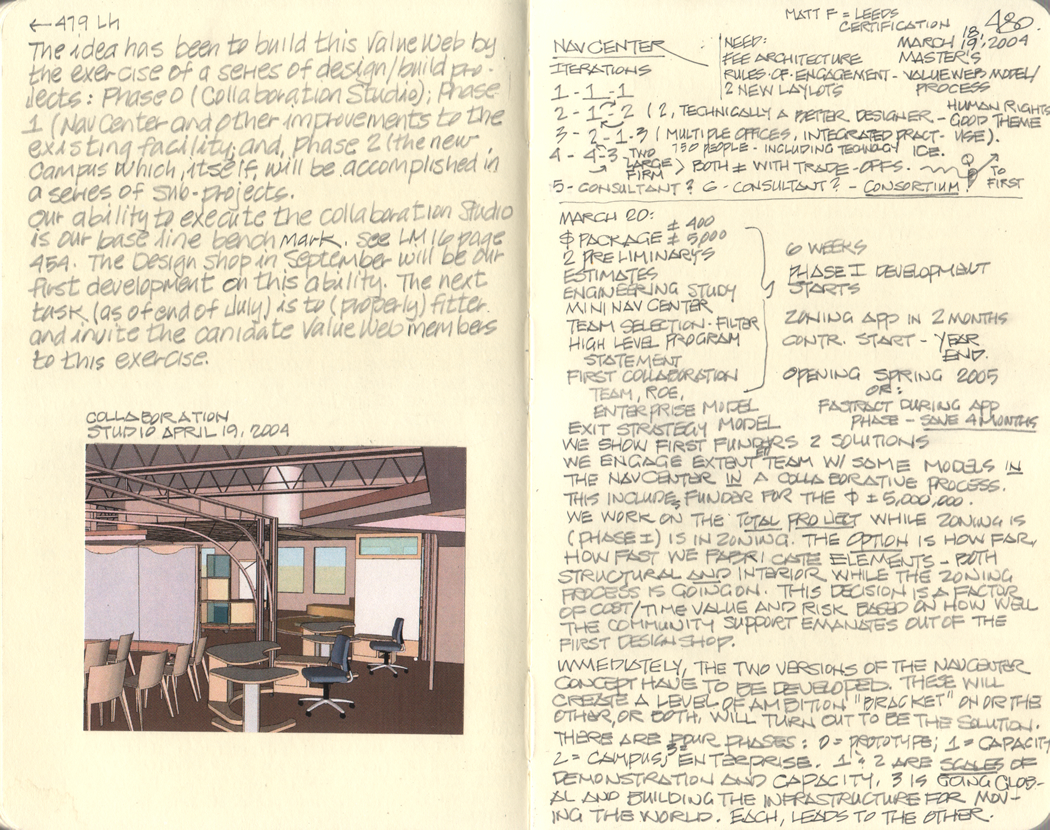 ← 479 Lh
The idea has been to build this ValueWeb by
the exercise of a series of design/build pro-
jects: Phase 0 (Collaboration Studio); Phase
1 (NavCenter and other improvements to the
existing facility; and, phase 2 (the new
Campus which, itself, will be accomplished in
a series of sub-projects.
Our ability to execute the collaboration Studio
is our base line bench mark. see LM16 page
454. The Design shop in September will be our
first development on this ability. The next
task (as of end of July) is to (properly) fitter
and invite the canidate ValueWeb members
to this exercise.
COLLABORATION
STUDIO APRIL 19, 2004
MATT F = LEEDS
CERTIFICATION
480
18,
MARCH 19, 2004
NAVCENTER
ITERATIONS
NEED:
FEE ARCHITECTURE
RULES-OF-ENGAGEMENT -
2 NEW LAYLOTS
MASTER'S
VALUEWEB MODEL/
PROCESS
1 - 1 - 1
2 - 1 - 2 (2, TECHNICALLY A BETTER DESIGNER - GOOD THEME
HUMAN RIGHTS
3 - 2 - 1-3 (MULTIPLE OFFICES, INTEGRATED PRACT- USE).
750 PEOPLE - INCLUDING TECHNOLOGY ICE.
4 - 4-3- TWO LARGE FIRM > BOTH ± WITH TRADE-OFFS.
TO FIRST
5 - CONSULTANT? 6 - CONSULTANT? - CONSORTIUM!
MARCH 20:
± 400
$ PACKAGE ± 5,000
2 PRELIMINARYS
ESTIMATES
ENGINEERING STUDY
MINI NAV CENTER
TEAM SELECTION - FILTER
HIGH LEVEL PROGRAM
STATEMENT
FIRST COLLABORATION
TEAM, ROE,
ENTERPRISE MODEL
EXIT STRATEGY MODEL
6 WEEKS
PHASE I DEVELOPMENT
STARTS
ZONING APP IN 2 MONTHS
CONTR. START - YEAR
END.
OPENING SPRING 2005
OR:
FASTRACT DURING APP
PHASE - SAVE 4 MONTHS
WE SHOW FIRST FUNDERS 2 SOLUTIONS
WE ENGAGE EXTENT TEAM W/ SOME MODELS IN
THE NAVCENTER IN A COLLABORATIVE PROCESS.
THIS INCLUDES FUNDER FOR THE $ ± 5,000,000.
WE WORK ON THE TOTAL PROJECT WHILE ZONING IS
(PHASE I) IS IN ZONING. THE OPTION IS HOW FAR,
HOW FAST WE FABRICATE ELEMENTS - BOTH
STRUCTURAL AND INTERIOR WHILE THE ZONING
PROCESS IS GOING ON. THIS DECISION IS A FACTOR
OF COST/TIME VALUE AND RISK BASED ON HOW WELL
THE COMMUNITY SUPPORT EMANATES OUT OF THE
FIRST DESIGN SHOP.
IMMEDIATELY, THE TWO VERSIONS OF THE NAVCENTER
CONCEPT HAVE TO BE DEVELOPED. THESE WILL
CREATE A LEVEL OF AMBITION "BRACKET" ON OR THE
OTHER, OR BOTH, WILL TURN OUT TO BE THE SOLUTION.
THERE ARE FOUR PHASES: 0 = PROTOTYPE; 1 = CAPACITY
2 = CAMPUS; 3= ENTERPRISE. 1 & 2 ARE SCALES OF
DEMONSTRATION AND CAPACITY. 3 IS GOING GLOB-
AL AND BUILDING THE INFRASTRUCTURE FOR MOV-
ING THE WORLD. EACH, LEADS TO THE OTHER.